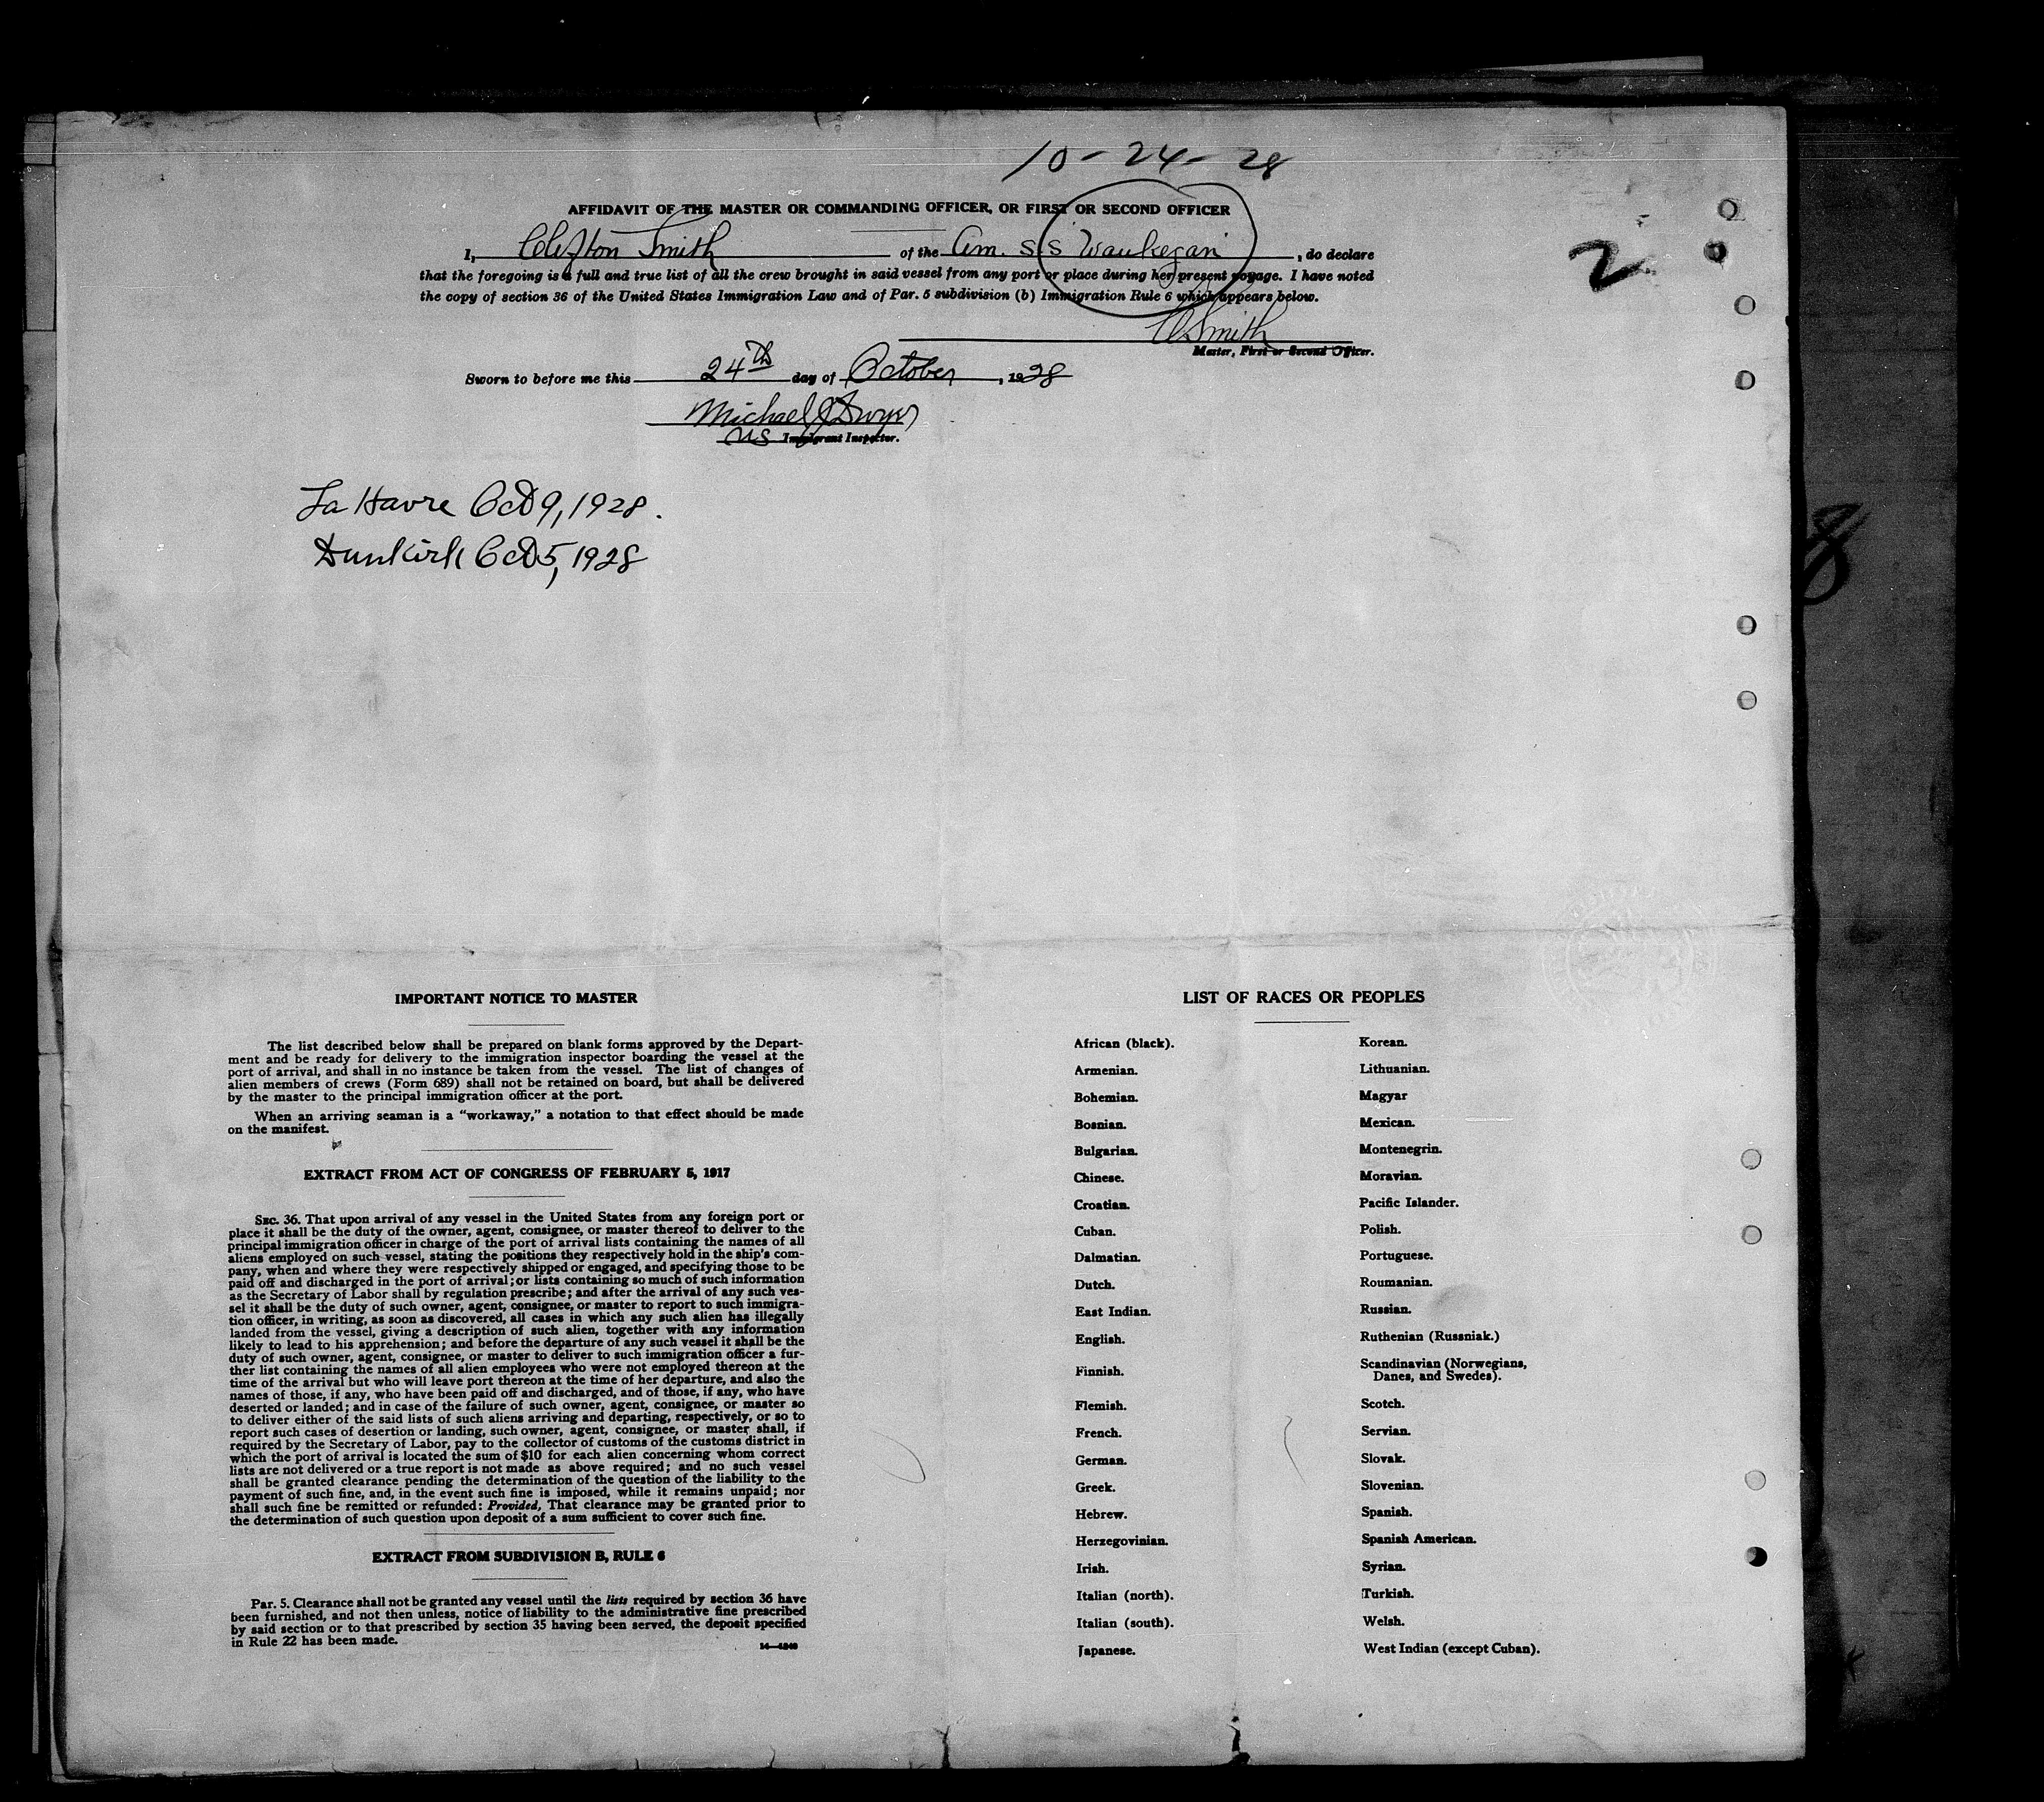 10-24-28
AFFIDAVIT OF THE MASTER OR COMMANDING OFFICER, OR FIRST OR SECOND OFFICER
I, Clifton Smith of the Am. SS Waukegan, do declare
that the foregoing is a full and true list of all the crew brought in said vessel from any port or place during her present voyage. I have noted
the copy of section 36 of the United States Immigration Law and of Par. 5 subdivision (b) Immigration Rule 6 which appears below.
2
C Smith
Master, First or Second Officer.
Sworn to before me this 24th day of October, 1928
Michael J Dwyer
US Immigrant Inspector.
La Havre Oct 9, 1928.
Dunkirk Oct 5, 1928
8
IMPORTANT NOTICE TO MASTER
The list described below shall be prepared on blank forms approved by the Depart-
ment and be ready for delivery to the immigration inspector boarding the vessel at the
port of arrival, and shall in no instance be taken from the vessel. The list of changes of
alien members of crews (Form 689) shall not be retained on board, but shall be delivered
by the master to the principal immigration officer at the port.
When an arriving seaman is a "workaway," a notation to that effect should be made
on the manifest.
EXTRACT FROM ACT OF CONGRESS OF FEBRUARY 5, 1917
SEC. 36. That upon arrival of any vessel in the United States from any foreign port or
place it shall be the duty of the owner, agent, consignee, or master thereof to deliver to the
principal immigration officer in charge of the port of arrival lists containing the names of all
aliens employed on such vessel, stating the positions they respectively hold in the ship's com-
pany, when and where they were respectively shipped or engaged, and specifying those to be
paid off and discharged in the port of arrival; or lists containing so much of such information
as the Secretary of Labor shall by regulation prescribe; and after the arrival of any such ves-
sel it shall be the duty of such owner, agent, consignee, or master to report to such immigra-
tion officer, in writing, as soon as discovered, all cases in which any such alien has illegally
landed from the vessel, giving a description of such alien, together with any information
likely to lead to his apprehension; and before the departure of any such vessel it shall be the
duty of such owner, agent, consignee, or master to deliver to such immigration officer a fur-
ther list containing the names of all alien employees who were not employed thereon at the
time of the arrival but who will leave port thereon at the time of her departure, and also the
names of those, if any, who have been paid off and discharged, and of those, if any, who have
deserted or landed; and in case of the failure of such owner, agent, consignee, or master so
to deliver either of the said lists of such aliens arriving and departing, respectively, or so to
report such cases of desertion or landing, such owner, agent, consignee, or master shall, if
required by the Secretary of Labor, pay to the collector of customs of the customs district in
which the port of arrival is located the sum of $10 for each alien concerning whom correct
lists are not delivered or a true report is not made as above required; and no such vessel
shall be granted clearance pending the determination of the question of the liability to the
payment of such fine, and, in the event such fine is imposed, while it remains unpaid; nor
shall such fine be remitted or refunded: Provided, That clearance may be granted prior to
the determination of such question upon deposit of a sum sufficient to cover such fine.
EXTRACT FROM SUBDIVISION B, RULE 6
Par. 5. Clearance shall not be granted any vessel until the lists required by section 36 have
been furnished, and not then unless, notice of liability to the administrative fine prescribed
by said section or to that prescribed by section 35 having been served, the deposit specified
in Rule 22 has been made.
LIST OF RACES OR PEOPLES
African (black).
Armenian.
Bohemian.
Bosnian.
Bulgarian.
Chinese.
Croatian.
Cuban.
Dalmatian.
Dutch.
East Indian.
English.
Finnish.
Flemish.
French.
German.
Greek.
Hebrew.
Herzegovinian.
Irish.
Italian (north).
Italian (south).
Japanese.
Korean.
Lithuanian.
Magyar
Mexican.
Montenegrin.
Moravian.
Pacific Islander.
Polish.
Portuguese.
Roumanian.
Russian.
Ruthenian (Russniak.)
Scandinavian (Norwegians,
Danes, and Swedes).
Scotch.
Servian.
Slovak.
Slovenian.
Spanish.
Spanish American.
Syrian.
Turkish.
Welsh.
West Indian (except Cuban).